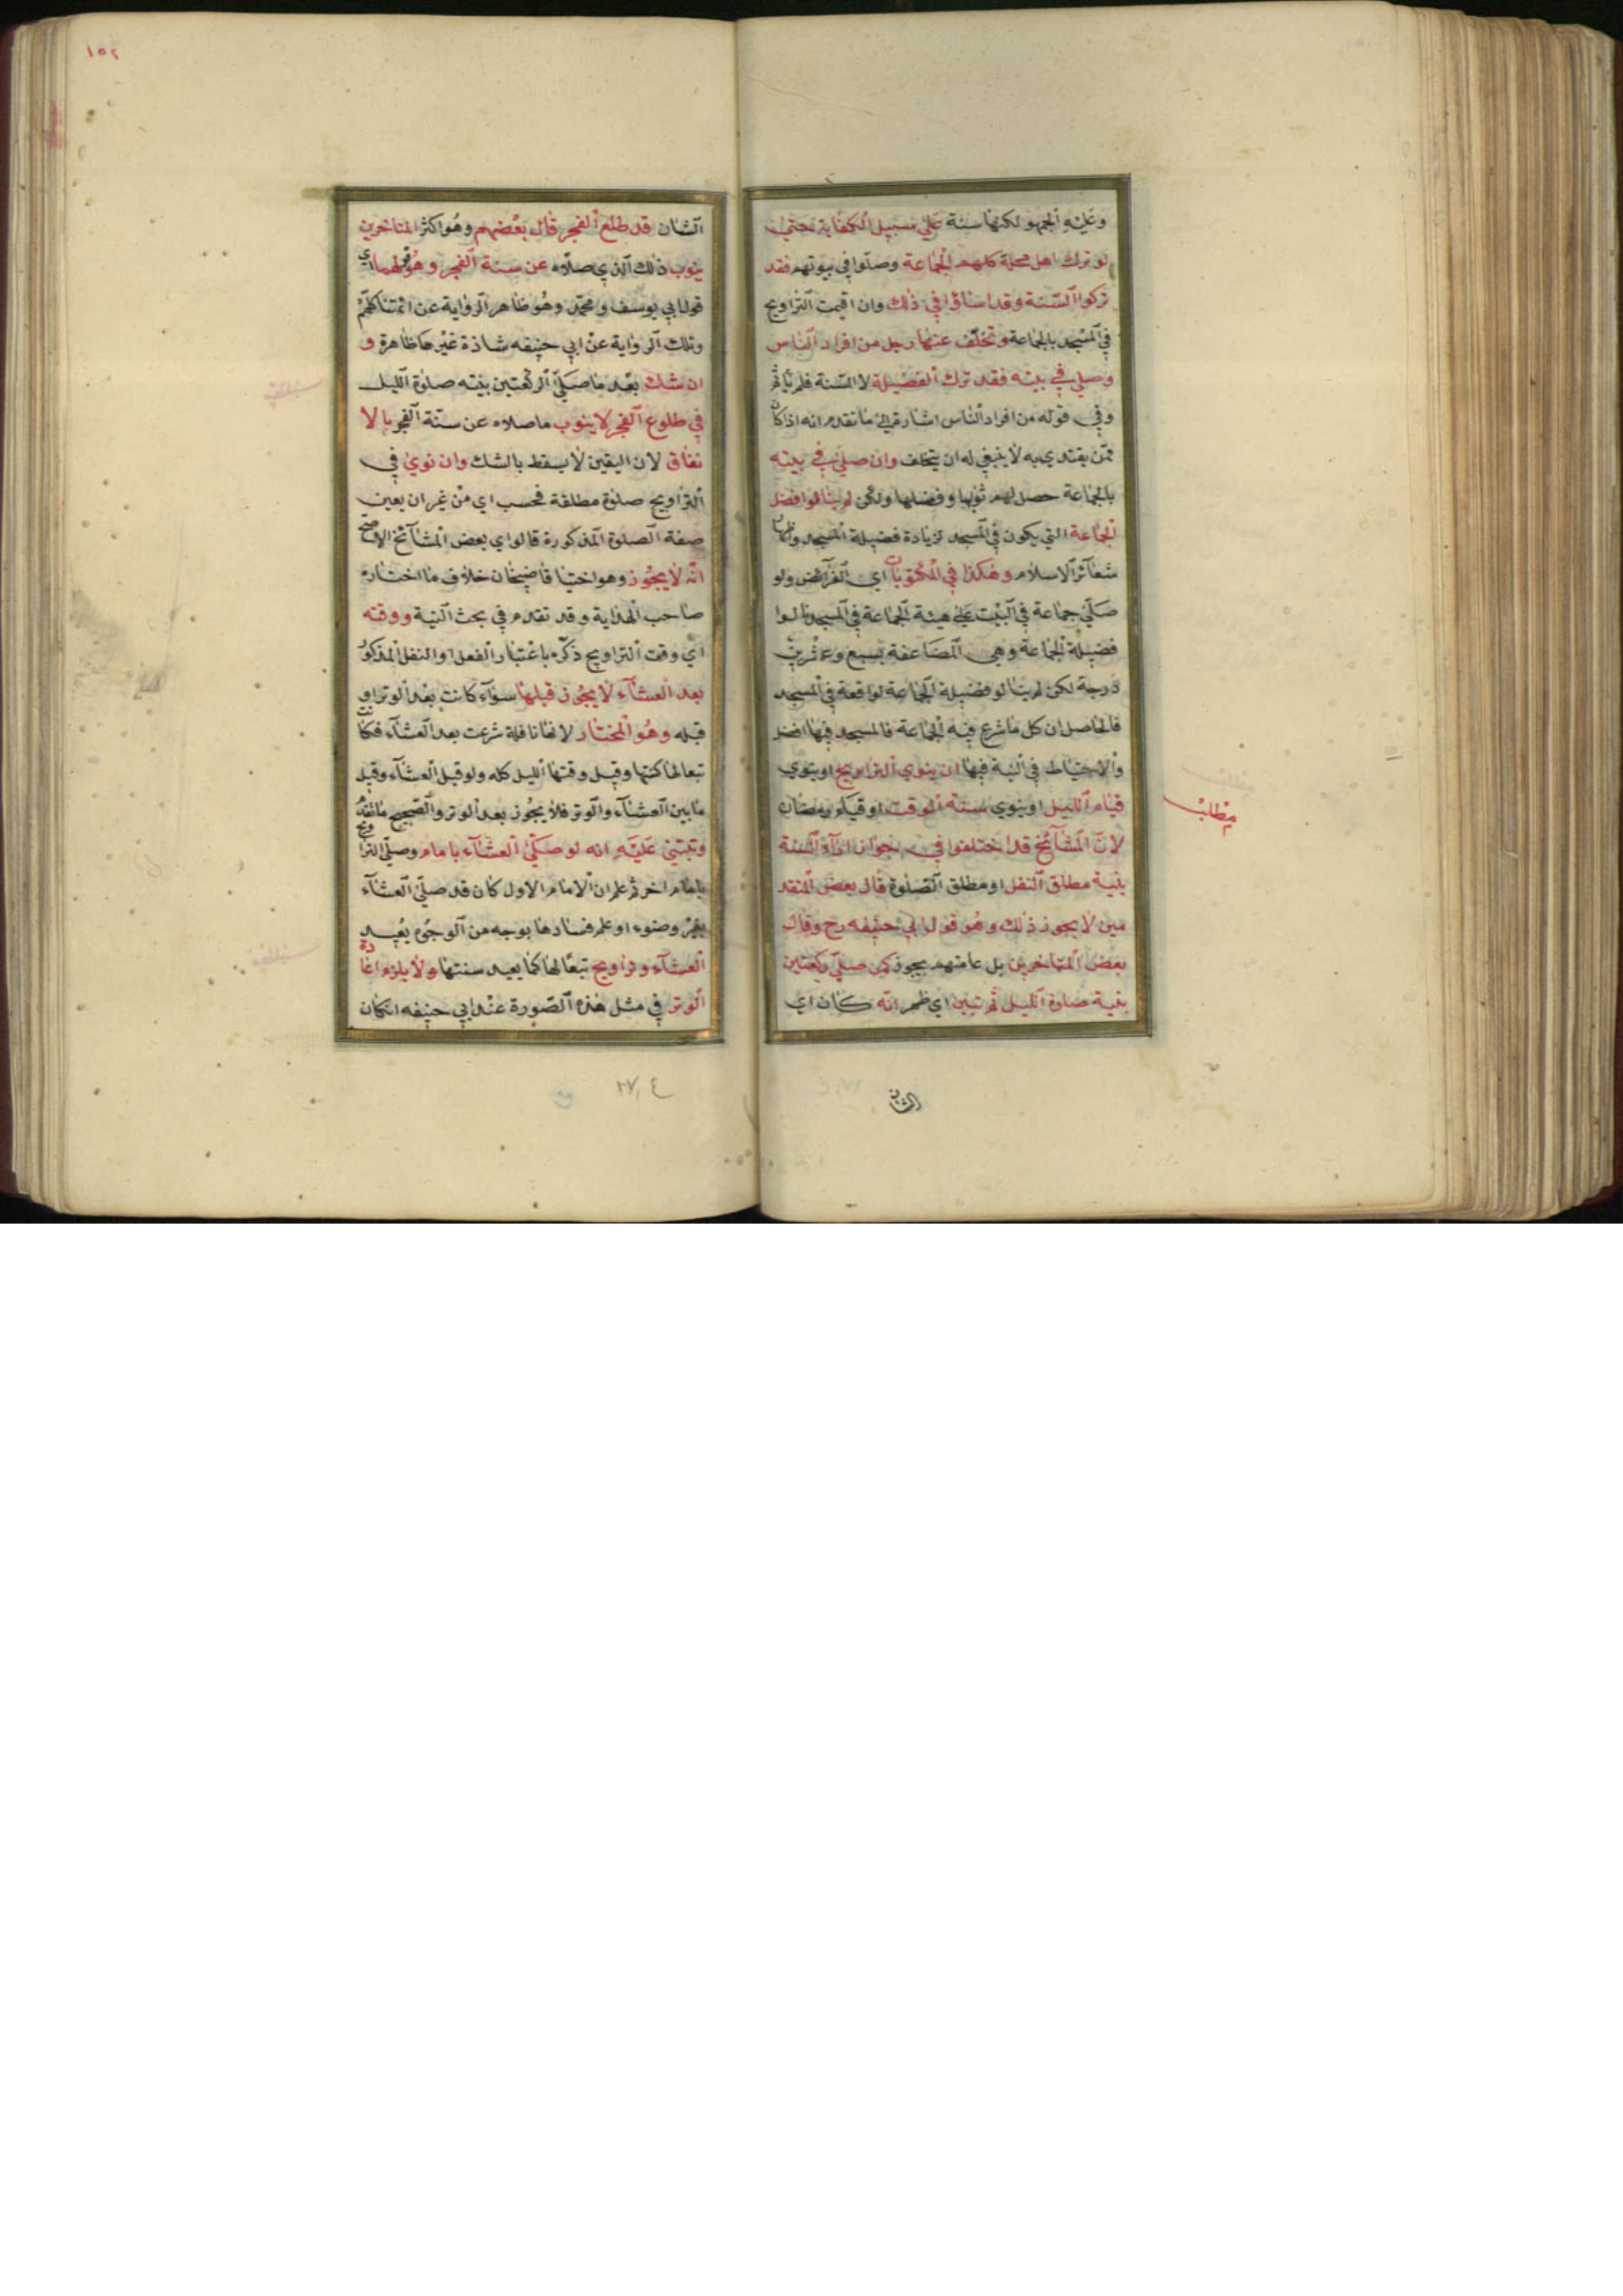 وعليه الجمهو لكنها سنة على سبيل الكفاية حتى
لو ترك اهل محلة كلهم الجماعة وصلوا في بيوتهم فقد
تركوا السنة وقد اساؤا في ذلك وان اقيمت التراويح
في المسجد بالجماعة وتخلف عنها رجل من افراد الناس
وصلى في بيته فقد ترك الفضيلة لا السنة فلم يأثم
وفي قوله من افراد الناس اشارة الى ما تقدم انه اذا كان
ممن يقتدي به لا ينبغي له ان يتخلف وان صلى في بيته
بالجماعة حصل لهم ثوابها وفضلها ولكن لم ينالوا فضل
الجماعة التي يكون في المسجد لزيادة فضيلة المسجد واظهار
شعائر الاسلام وهكذا في المكتوبات اي الفرائض ولو
صلى جماعة في البيت على هيئة الجماعة في المسجد نالوا
فضيلة الجماعة وهي المضاعفة بسبع وعشرين
درجة لكن لم ينالو فضيلة الجماعة لواقعة في المسجد
فالحاصل ان كل ما شرع فيه الجماعة فالمسجد فيها افضل
والاحتياط في النية فيها ان ينوي التراويح او ينوي
قيام الليل او ينوي سنة الوقت او قيام رمضان
مطلب
لان المشائخ قد اختلفوا في جواز اداء السنة
بنية مطلق النفل او مطلق الصلوة قال بعض المتقد
مين لا يجوز ذلك وهو قول ابي حنيفه رح وقال
بعض المتاخرين بل عامتهم يجوز كمن صلى ركعتين
بنية صلوة الليل ثم تبين اي ظهر انه كان اي
الشان
١٥٢
الشان قد طلع الفجر قال بعضهم وهو اكثر المتاخرين
ينوب ذلك الذي صلاه عن سنة الفجر وهو قولهما اي
قول ابي يوسف ومحمد وهو ظاهر الرواية عن ائمتنا كلهم
وتلك الرواية عن ابي حنيفه شاذة غير ظاهرة و
ان شك بعد ما صلى الركعتين بنيته صلوة الليل
في طلوع الفجر لا ينوب ما صلاه عن سنة الفجر بالا
تفاق لان اليقين لا يسقط بالشك وان نوى في
التراويح صلوة مطلقة فحسب اي من غير ان يعين
صفة الصلوة المذكورة قالوا اي بعض المشائخ الاصح
انه لا يجوز وهو اختيا قاضيخان خلاف ما اختاره
صاحب الهداية وقد تقدم في بحث النية ووقته
اي وقت التراويح ذكره باعتبار الفعل او النفل المذكور
بعد العشاء لا يجوز قبلها سواء كانت بعد الوتر او
قبله وهو المختار لانها نافلة شرعت بعد العشاء فكانت
تبعا لها كسنتها وقيل وقتها الليل كله ولو قبل العشاء وقيل
ما بين العشاء والوتر فلا يجوز بعد الوتر والصحيح ما تقدم
وتبتني عليه انه لو صلى العشاء بامام وصلى التراويح
بامام اخر ثم علم ان الامام الاول كان قد صلى العشاء
بغير وضوء او علم فسادها بوجه من الوجوه يعيد
العشاء وتراويح تبعا لها كما يعيد سنتها ولا يلزم اعادة
الوتر في مثل هذه الصورة عند ابي حنيفه ان كان